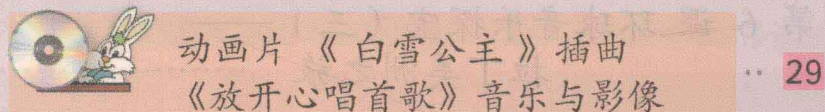 动画片 《 白雪公主 》插曲
《放开心唱首歌》音乐与影像 ·· 29